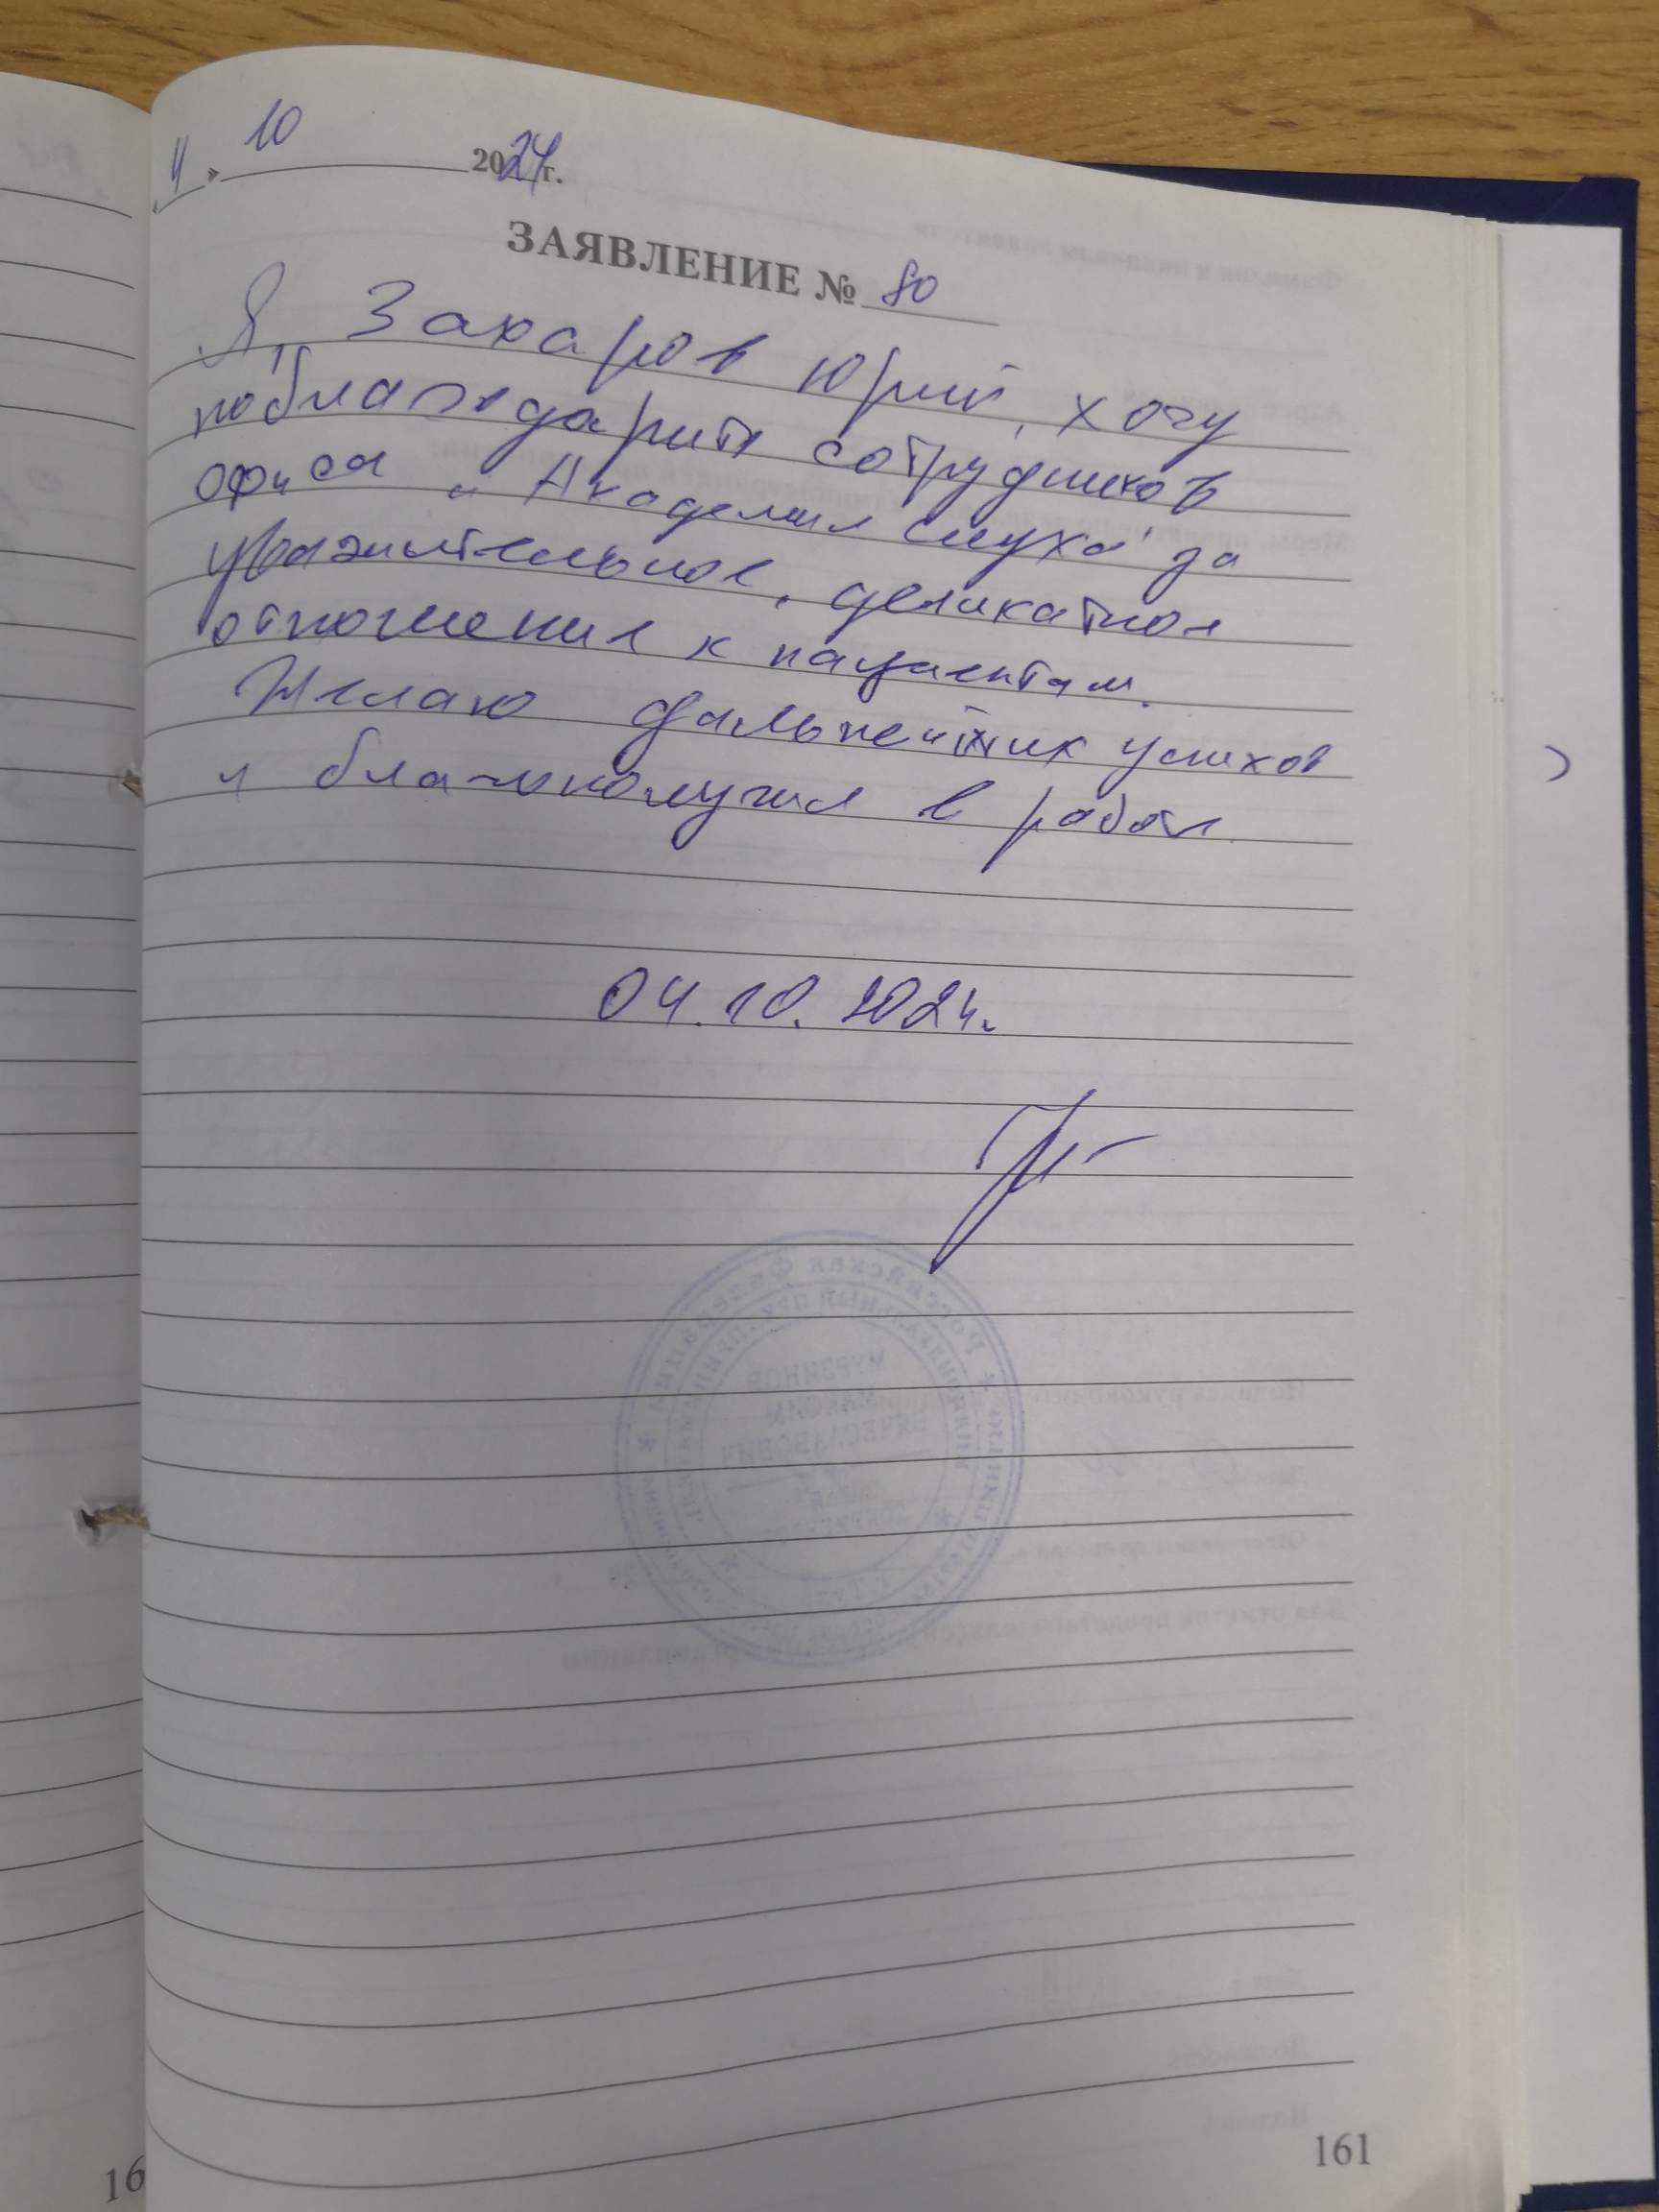 « 4 » 10 2024г.
ЗАЯВЛЕНИЕ № 80
Я, Захаров Юрий, хочу
поблагодарить сотрудников
офиса "Академия слуха" за
уважительное, деликатное
отношение к пациентам.
Желаю дальнейших успехов
и благополучия в работе
04.10.2024.
161
16